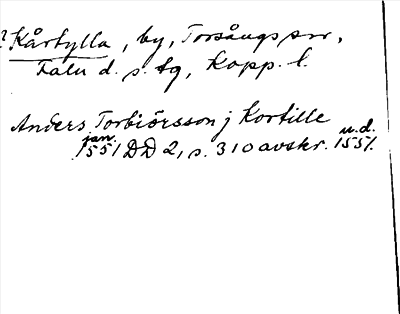 ? Kårtylla, by, Torsångs sn,
Falu d. s. tg, Kopp. l.
Anders Torbiörsson j Kortille
jan. u.d.
1551 DD 2, s. 310 avskr. 1551.